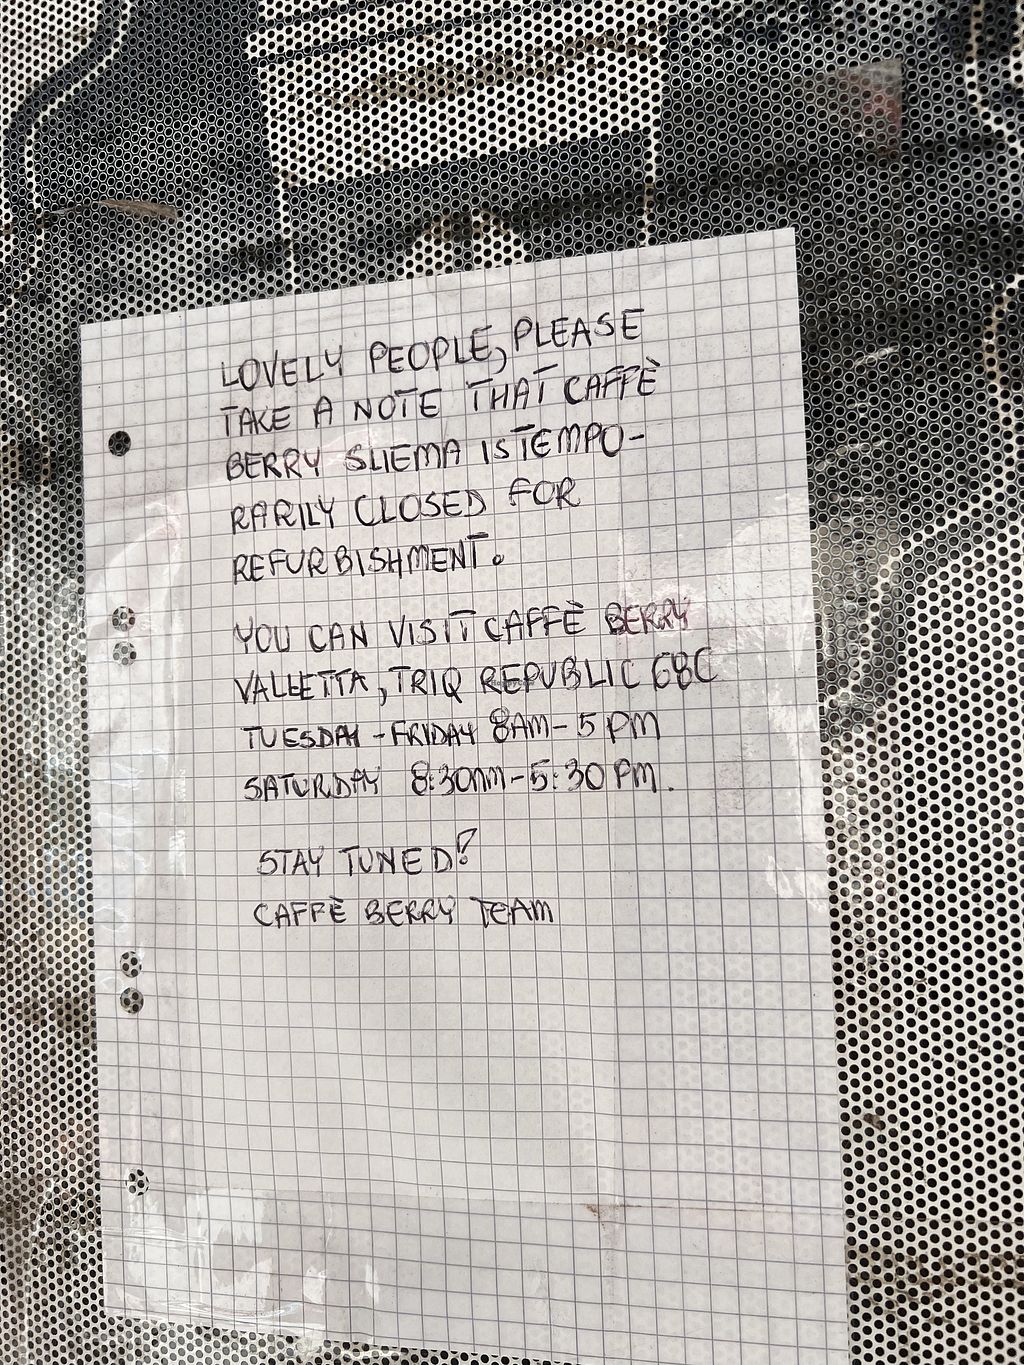 LOVELY PEOPLE, PLEASE
TAKE A NOTE THAT CAFFÈ
BERRY SLIEMA IS TEMPO-
RARILY CLOSED FOR
REFURBISHMENT.
YOU CAN VISIT CAFFÈ BERRY
VALLETTA, TRIQ REPUBLIC 68C
TUESDAY - FRIDAY 8AM - 5 PM
SATURDAY 8:30AM - 5:30 PM.
STAY TUNED!
CAFFÈ BERRY TEAM